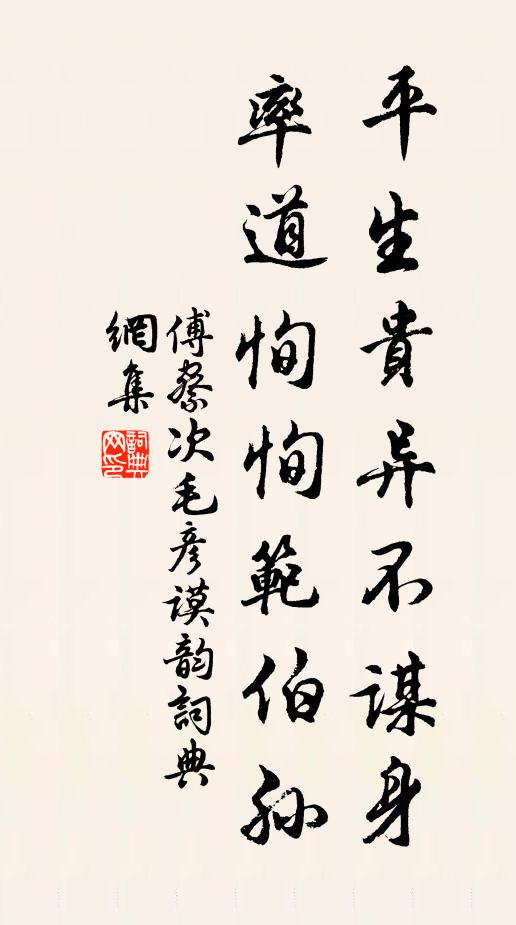 平生貴异不謀身
率道恂恂範伯孫
傅察次毛彦謨韵詞典
網集
詞典網印